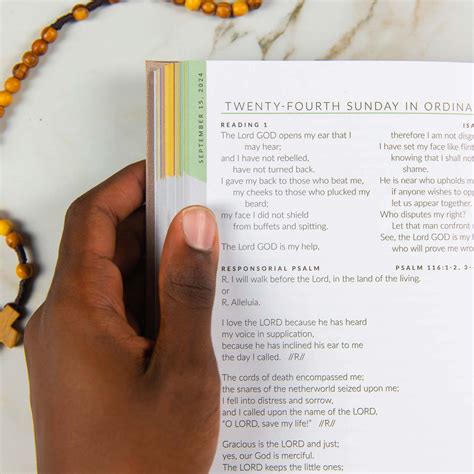 SEPTEMBER 15, 2024
TWENTY-FOURTH SUNDAY IN ORDINA
READING 1
The Lord GOD opens my ear that I
may hear;
and I have not rebelled,
have not turned back.
I gave my back to those who beat me,
my cheeks to those who plucked my
beard;
my face I did not shield
from buffets and spitting.
The Lord GOD is my help,
ISA
therefore I am not disg
I have set my face like flint
knowing that I shall not
shame.
He is near who upholds m
if anyone wishes to opp
let us appear together.
Who disputes my right?
Let that man confront
See, the Lord GOD is my h
who will prove me wron
RESPONSORIAL PSALM
PSALM 116:1-2, 3-
R. I will walk before the Lord, in the land of the living.
or
R. Alleluia.
I love the LORD because he has heard
my voice in supplication,
because he has inclined his ear to me
the day I called. //R//
The cords of death encompassed me;
the snares of the netherworld seized upon me;
I fell into distress and sorrow,
and I called upon the name of the LORD,
"O LORD, save my life!" //R//
Gracious is the LORD and just;
yes, our God is merciful.
The LORD keeps the little ones;